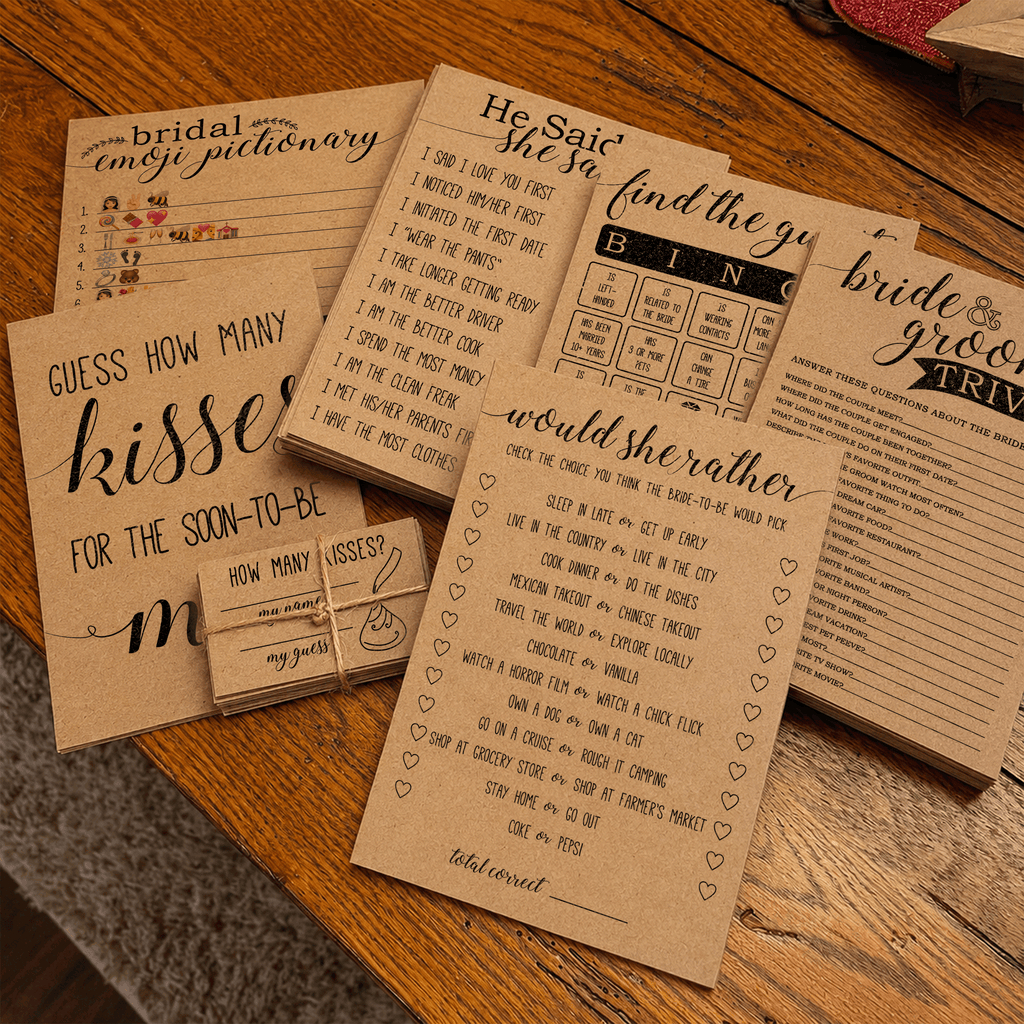 bridal
emoji pictionary
1.
2.
3.
4.
5.
6
He Said
she sa
I SAID I LOVE YOU FIRST
I NOTICED HIM/HER FIRST
I INITIATED THE FIRST DATE
I "WEAR THE PANTS"
I TAKE LONGER GETTING READY
I AM THE BETTER DRIVER
I AM THE BETTER COOK
I SPEND THE MOST MONEY
I AM THE CLEAN FREAK
I MET HIS/HER PARENTS FIR
I HAVE THE MOST CLOTHES
find the gu
B I N G
IS LEFT-HANDED
IS RELATED TO THE BRIDE
IS WEARING CONTACTS
CAN MORE LAN
HAS BEEN MARRIED 10+ YEARS
HAS 3 OR MORE PETS
CAN CHANGE A TIRE
IS
IS THE
bride &
groom
TRIV
ANSWER THESE QUESTIONS ABOUT THE BRIDE
WHERE DID THE COUPLE MEET?
WHERE DID THE COUPLE GET ENGAGED?
HOW LONG HAS THE COUPLE BEEN TOGETHER?
WHAT DID THE COUPLE DO ON THEIR FIRST DATE?
DESCRIBE
'S FAVORITE OUTFIT
E GROOM WATCH MOST OFTEN?
AVORITE THING TO DO?
DREAM CAR?
AVORITE FOOD?
AVORITE RESTAURANT?
E WORK?
FIRST JOB?
VORITE MUSICAL ARTIST?
VORITE BAND?
OR NIGHT PERSON?
VORITE DRINK?
EAM VACATION?
EST PET PEEVE?
MOST?
RITE TV SHOW?
RITE MOVIE?
GUESS HOW MANY
kisses
FOR THE SOON-TO-BE
m
HOW MANY KISSES?
my name
my guess
would she rather
CHECK THE CHOICE YOU THINK THE BRIDE-TO-BE WOULD PICK
SLEEP IN LATE or GET UP EARLY
LIVE IN THE COUNTRY or LIVE IN THE CITY
COOK DINNER or DO THE DISHES
MEXICAN TAKEOUT or CHINESE TAKEOUT
TRAVEL THE WORLD or EXPLORE LOCALLY
CHOCOLATE or VANILLA
WATCH A HORROR FILM or WATCH A CHICK FLICK
OWN A DOG or OWN A CAT
GO ON A CRUISE or ROUGH IT CAMPING
SHOP AT GROCERY STORE or SHOP AT FARMER'S MARKET
STAY HOME or GO OUT
COKE or PEPSI
total correct